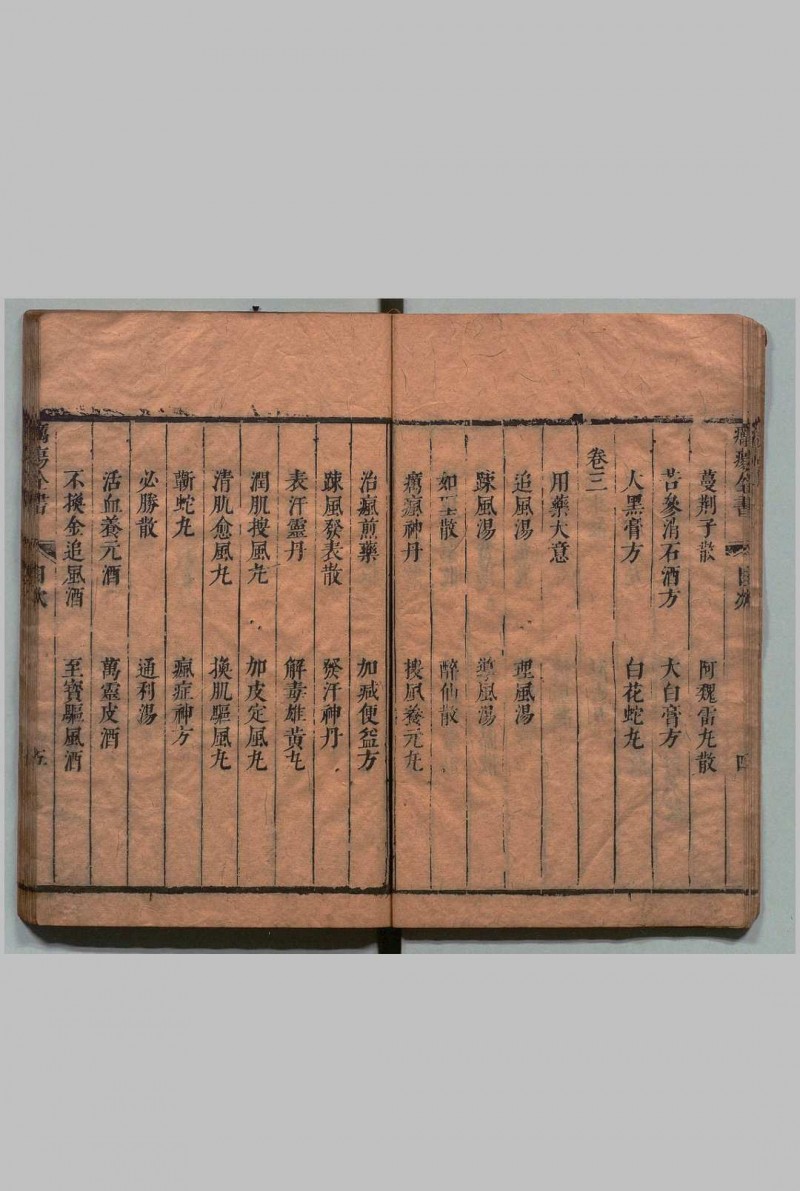 蔓荆子散　阿魏雷丸散
苦參消石酒方　大白膏方
大黑膏方　白花蛇丸
卷三
用藥大意
追風湯　理風湯
踈風湯　風湯
如聖散　醉仙散
癘瘋神丹　搜風養元丸
治瘋煎藥　加减便益方
踈風發表散　發汗神丹
表汗靈丹　解毒雄黃丸
潤肌搜風丸　加皮定風丸
清肌愈風丸　換肌驅風丸
蘄蛇丸　瘋症神方
必勝散　通利湯
活血養元酒　萬靈皮酒
不換金追風酒　至寶驅風酒
全書　目次　四
癘瘍全書　目次　五